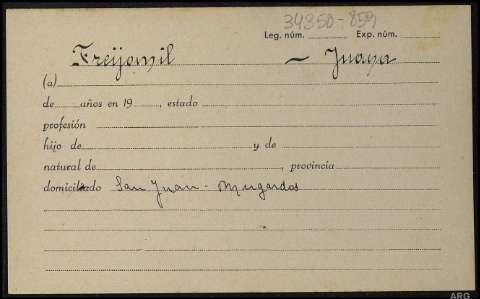 34350-859
Leg. núm. Exp. núm.
Freijomil — Juana
(a)
de años en 19 , estado
profesión
hijo de y de
natural de , provincia
domiciliado San Juan - Mugardos
ARG